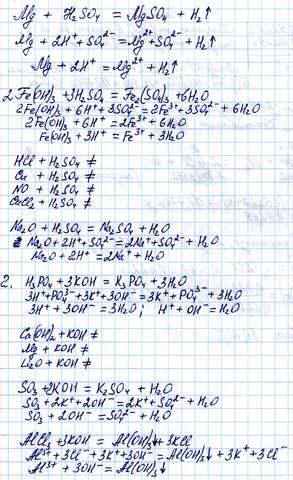 Mg + H₂SO₄ = MgSO₄ + H₂↑
Mg + 2H⁺ + SO₄²⁻ = Mg²⁺ + SO₄²⁻ + H₂↑
Mg + 2H⁺ = Mg²⁺ + H₂↑
2Fe(OH)₃ + 3H₂SO₄ = Fe₂(SO₄)₃ + 6H₂O
2Fe(OH)₃ + 6H⁺ + 3SO₄²⁻ = 2Fe³⁺ + 3SO₄²⁻ + 6H₂O
2Fe(OH)₃ + 6H⁺ = 2Fe³⁺ + 6H₂O
Fe(OH)₃ + 3H⁺ = Fe³⁺ + 3H₂O
HCl + H₂SO₄ ≠
Cu + H₂SO₄ ≠
NO + H₂SO₄ ≠
CuCl₂ + H₂SO₄ ≠
Na₂O + H₂SO₄ = Na₂SO₄ + H₂O
Na₂O + 2H⁺ + SO₄²⁻ = 2Na⁺ + SO₄²⁻ + H₂O
Na₂O + 2H⁺ = 2Na⁺ + H₂O
2. H₃PO₄ + 3KOH = K₃PO₄ + 3H₂O
3H⁺ + PO₄³⁻ + 3K⁺ + 3OH⁻ = 3K⁺ + PO₄³⁻ + 3H₂O
3H⁺ + 3OH⁻ = 3H₂O ; H⁺ + OH⁻ = H₂O
Ca(OH)₂ + KOH ≠
Mg + KOH ≠
Li₂O + KOH ≠
SO₃ + 2KOH = K₂SO₄ + H₂O
SO₃ + 2K⁺ + 2OH⁻ = 2K⁺ + SO₄²⁻ + H₂O
SO₃ + 2OH⁻ = SO₄²⁻ + H₂O
AlCl₃ + 3KOH = Al(OH)₃↓ + 3KCl
Al³⁺ + 3Cl⁻ + 3K⁺ + 3OH⁻ = Al(OH)₃↓ + 3K⁺ + 3Cl⁻
Al³⁺ + 3OH⁻ = Al(OH)₃↓